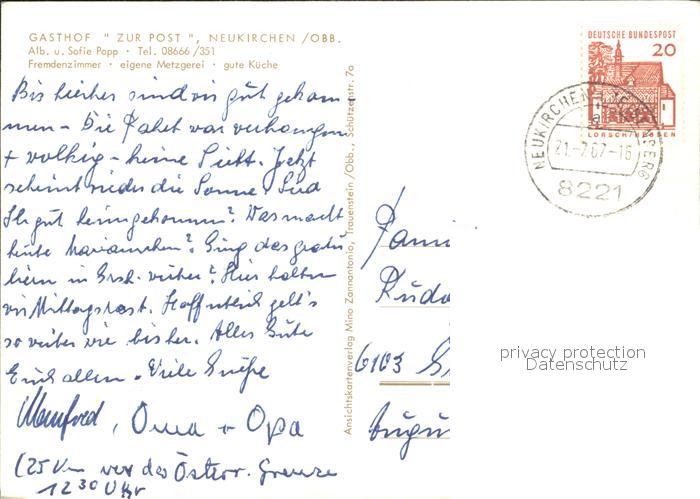 GASTHOF " ZUR POST ", NEUKIRCHEN /OBB.
Alb. u. Sofie Popp · Tel. 08666/351
Fremdenzimmer · eigene Metzgerei · gute Küche
Bis hierher sind wir gut gekom-
men - Die Fahrt war verhangen
+ wolkig - keine Sicht. Jetzt
scheint wieder die Sonne. Sind
Ihr gut heimgekommen? Was macht
heute Mariannchen? Ging das gratu
lieren in vorüber? Hier halten
wir Mittagsrast. Hoffentlich geht's
so weiter wie bisher. Alles Gute
Euch allen. Viele Grüße
Manfred, Oma + Opa
(25 km vor der Österr. Grenze
12 30 Uhr
Ansichtskartenverlag Mino Zannantonio, Traunstein/Obb., Schützenstr. 7a
DEUTSCHE BUNDESPOST
20
LORSCH/HESSEN
NEUKIRCHEN
21.-7.67-16
8221
Fami
Rudo
6103 G
Augu
privacy protection
Datenschutz